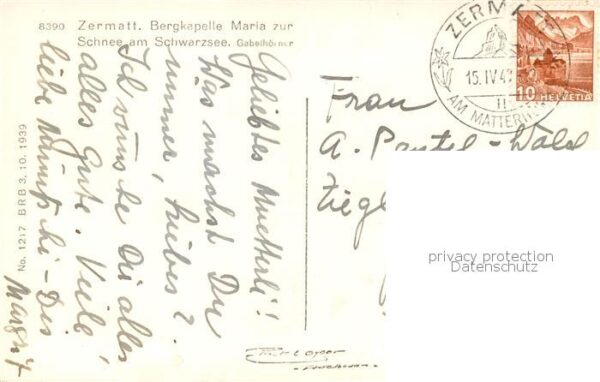 8390 Zermatt. Bergkapelle Maria zur
Schnee am Schwarzsee. Gabelhörner
ZERMATT
15.IV.4
AM MATTERH
10 HELVETIA
Geliebtes Muetterli!
Was machst Du
immer, liebes?
Ich wünsche Dir alles
alles Gute. Viele
liebe Müntschi - Dis
Margrit
No. 1217 BRB 3.10.1939
Frau
A.
Ziegl
privacy protection
Datenschutz